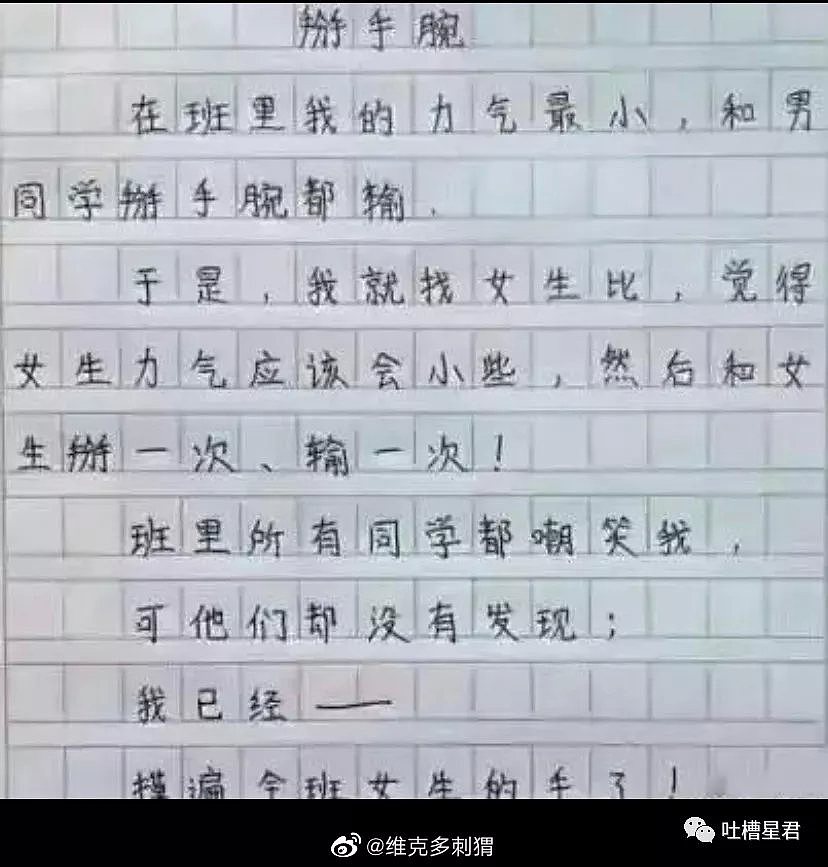 掰手腕
在班里我的力气最小，和男
同学掰手腕都输．
于是，我就找女生比，觉得
女生力气应该会小些，然后和女
生掰一次、输一次！
班里所有同学都嘲笑我，
可他们却没有发现；
我已经——
摸遍全班女生的手了！
@维克多刺猬
吐槽星君